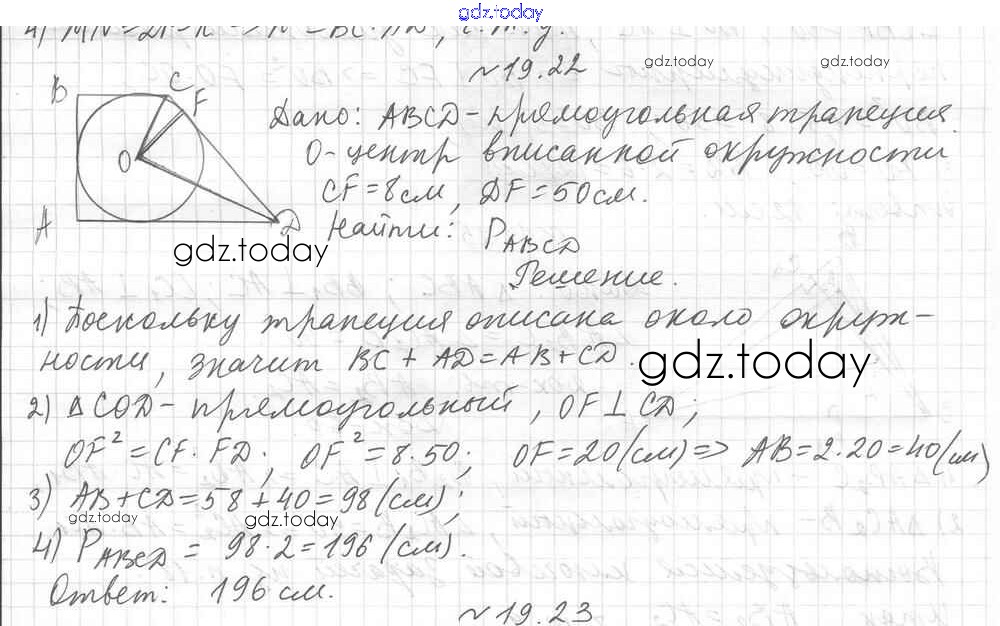 gdz.today
4) MN=2r=R
№19.22
gdz.today gdz.today
B C F O A D
Дано: ABCD-прямоугольная трапеция.
O-центр вписанной окружности
CF=8см, DF=50см.
Найти: P_ABCD
gdz.today
Решение.
1) Поскольку трапеция описана около окруж-
ности, значит BC + AD = AB + CD.
gdz.today
2) ΔCOD - прямоугольный, OF⊥CD;
OF² = CF · FD; OF² = 8·50; OF = 20(см) => AB = 2·20 = 40(см)
3) AB + CD = 58 + 40 = 98(см);
gdz.today gdz.today
4) P_ABCD = 98·2 = 196(см).
Ответ: 196 см.
№19.23